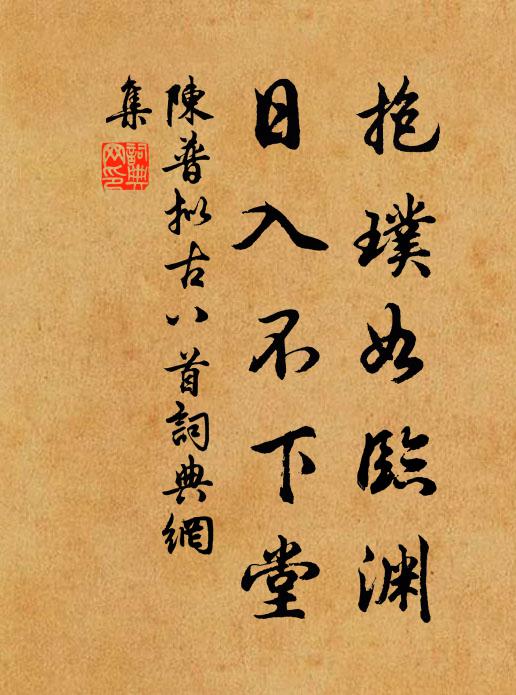 抱璞如臨渊
日入不下堂
陳普拟古八首詞典網
集
詞典
网印